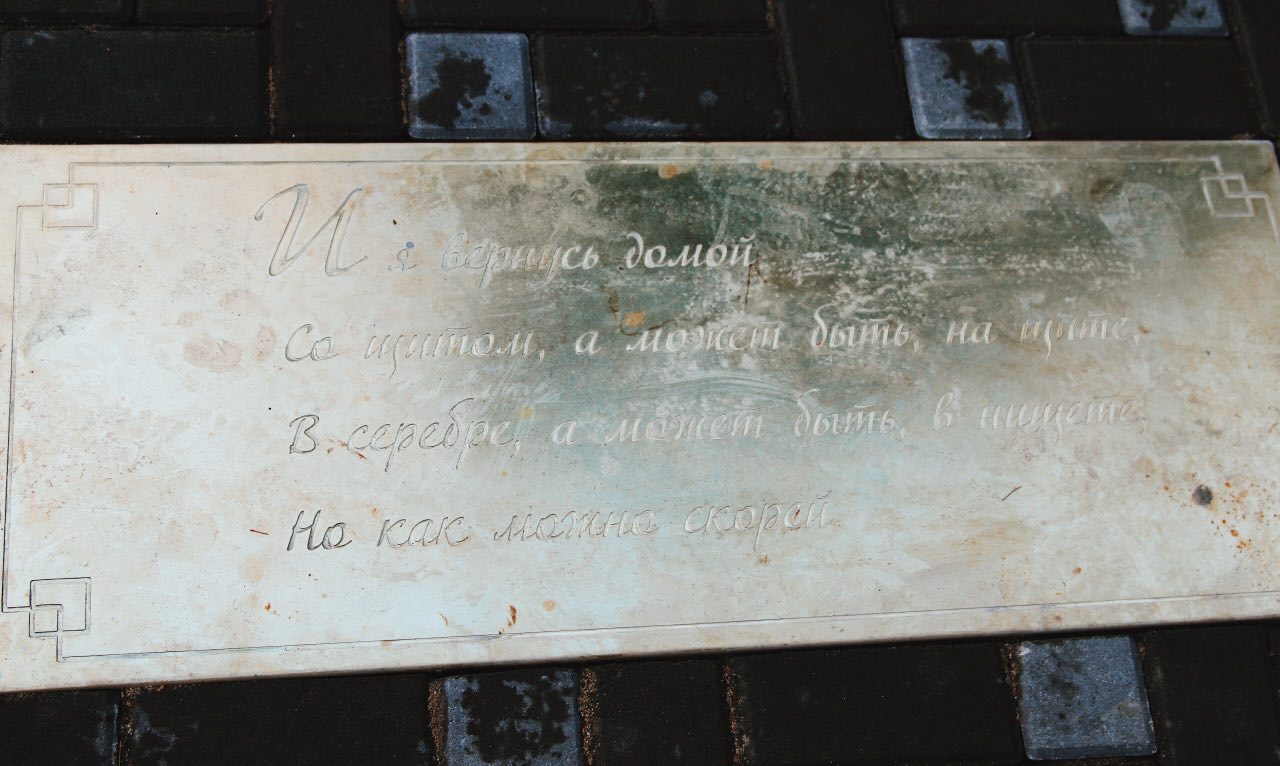 И я вернусь домой
Со щитом, а может быть, на щите,
В серебре, а может быть, в нищете,
Но как можно скорей.